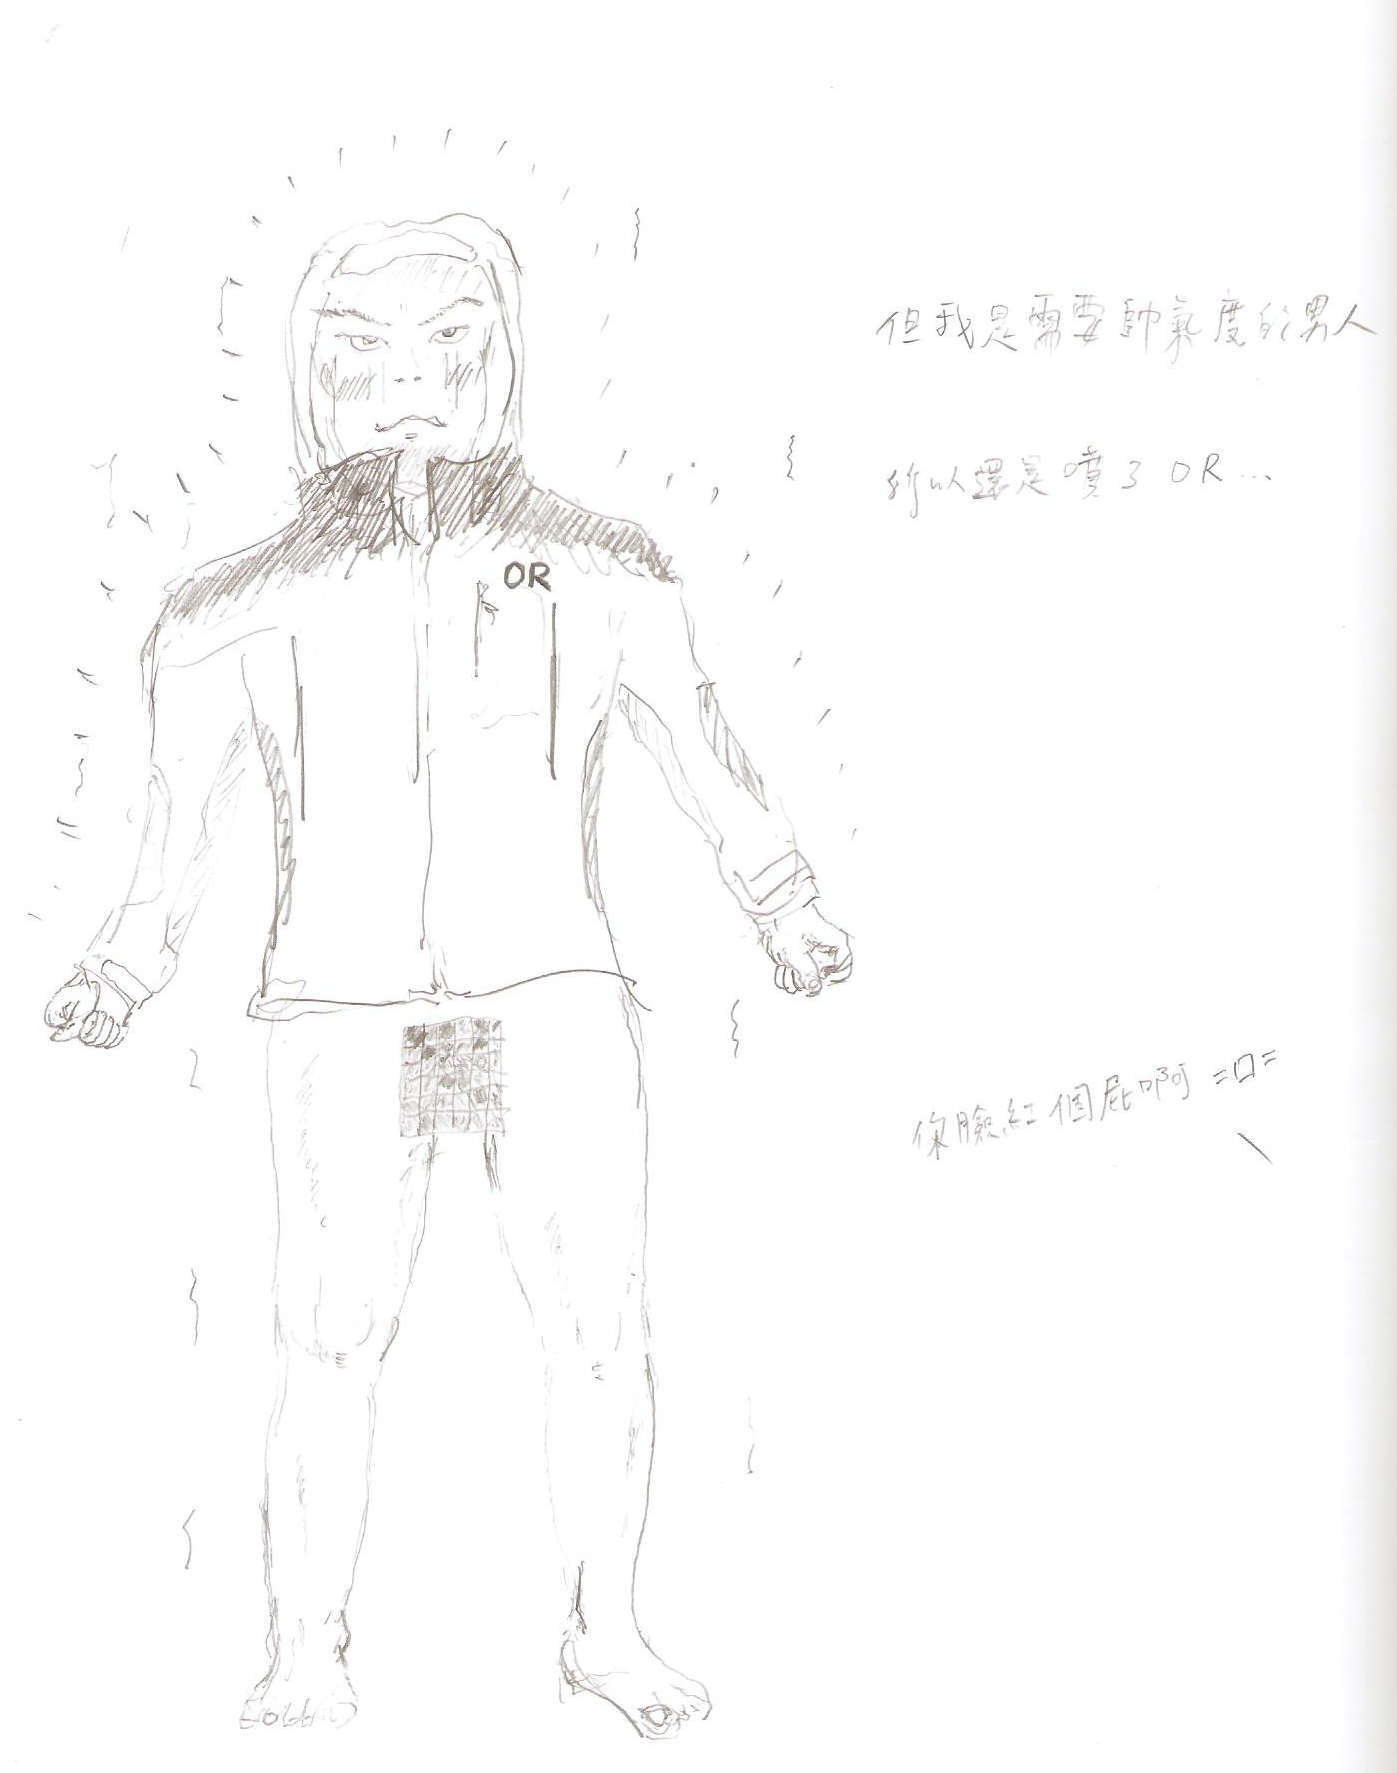 但我是需要帥氣度的男人
所以還是噴了OR...
OR
你臉紅個屁啊 =口=